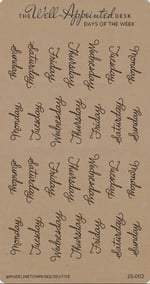 THE Well-Appointed DESK
DAYS OF THE WEEK
Sunday
Saturday
Friday
Thursday
Wednesday
Tuesday
Monday
Monday
Tuesday
Wednesday
Thursday
Friday
Saturday
Sunday
Sunday
Saturday
Friday
Thursday
Wednesday
Tuesday
Monday
Monday
Tuesday
Wednesday
Thursday
Friday
Saturday
Sunday
@MADELINETOMPKINSCREATIVE 25-002